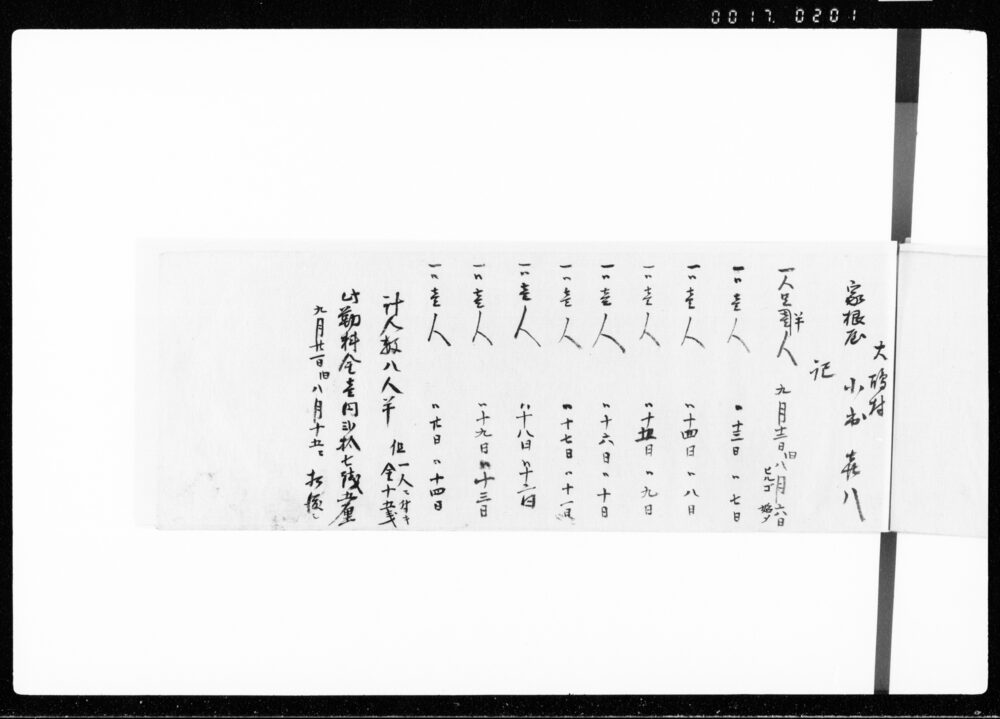 0017. 0201
大 村
家根屋 小 喜八
記
一人足 半人 九月十二日旧八月六日
ヒルゴ 始メ
一〃壱人 〃十三日〃七日
一〃壱人 〃十四日〃八日
一〃壱人 〃十五日〃九日
一〃壱人 〃十六日〃十日
一〃壱人 〃十七日〃十一日
一〃壱人 〃十八日〃十二日
一〃壱人 〃十九日〃十三日
一〃壱人 〃廿日〃十四日
計人数八人半 但一人ニ付キ
金十五銭
此勤料金壱円弐拾七銭五厘
九月廿一日旧八月十五日 払